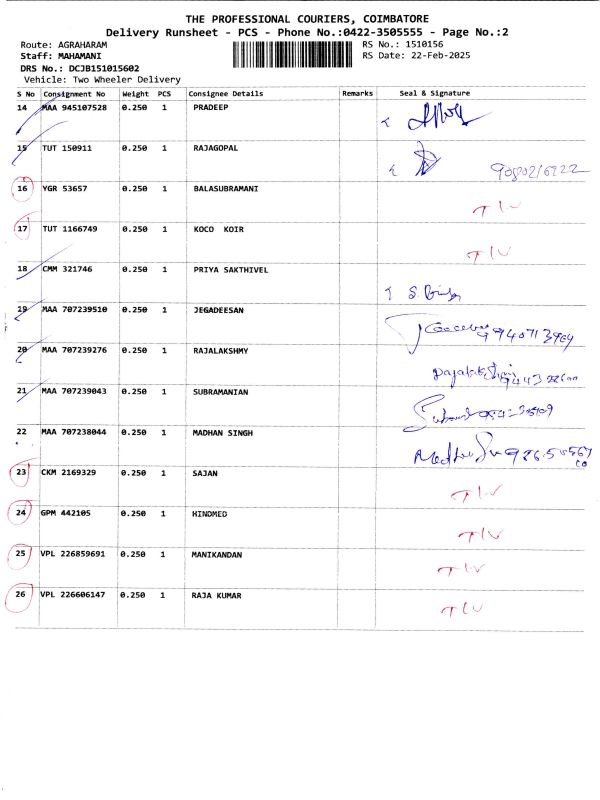 THE PROFESSIONAL COURIERS, COIMBATORE
Delivery Runsheet - PCS - Phone No.:0422-3505555 - Page No.:2
Route: AGRAHARAM RS No.: 1510156
Staff: MAHAMANI RS Date: 22-Feb-2025
DRS No.: DCJB151015602
Vehicle: Two Wheeler Delivery
S No Consignment No Weight PCS Consignee Details Remarks Seal & Signature
14 MAA 945107528 0.250 1 PRADEEP
15 TUT 150911 0.250 1 RAJAGOPAL
9080216722
16 YGR 53657 0.250 1 BALASUBRAMANI
TIV
17 TUT 1166749 0.250 1 KOCO KOIR
TIV
18 CMM 321746 0.250 1 PRIYA SAKTHIVEL
19 MAA 707239510 0.250 1 JEGADEESAN
20 MAA 707239276 0.250 1 RAJALAKSHMY
21 MAA 707239043 0.250 1 SUBRAMANIAN
22 MAA 707238044 0.250 1 MADHAN SINGH
23 CKM 2169329 0.250 1 SAJAN
TIV
24 GPM 442105 0.250 1 HINDMED
TIV
25 VPL 226859691 0.250 1 MANIKANDAN
TIV
26 VPL 226606147 0.250 1 RAJA KUMAR
TIV